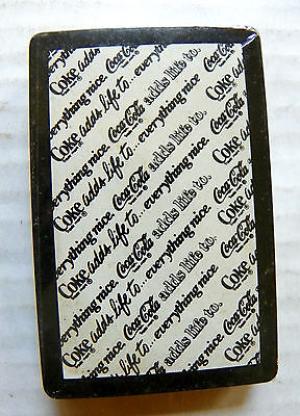 Coke adds life to... everything nice.
Coca-Cola adds life to.
everything nice. Coca-Cola adds life to.
Coke adds life to... everything nice. Coca-Cola
everything nice. Coca-Cola adds life to.
Coke adds life to... everything nice. Coca-Cola
everything nice. Coca-Cola adds life to.
Coke adds life to... everything nice. Coca-Cola
everything nice. Coca-Cola adds life to.
Coke adds life to... everything nice. Coca-Cola
everything nice. adds life to.